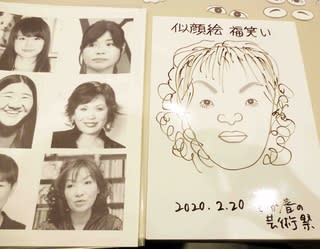 似顔絵 福笑い
2020.2.20
音の
芸術祭